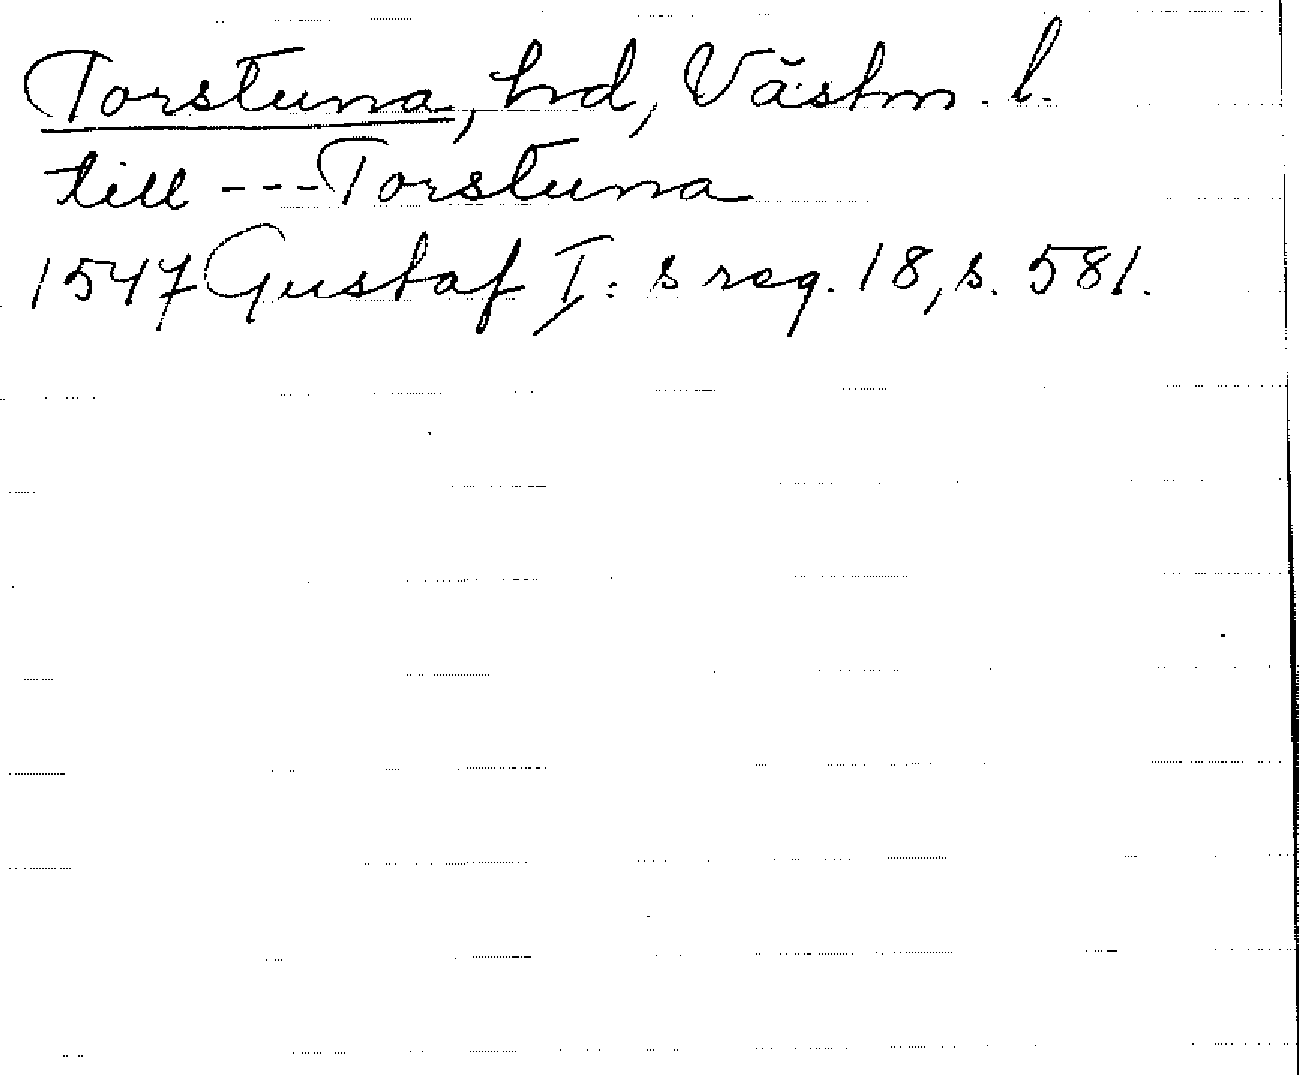 Torstuna, hd, Västm. l.
till --- Torstuna
1547 Gustaf I:s reg. 18, s. 581.